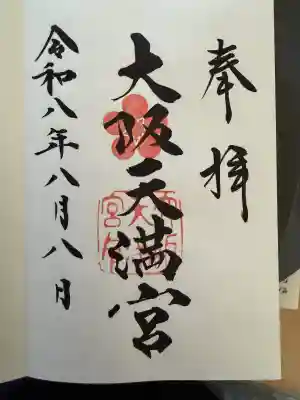 奉拝
大阪天満宮
令和八年八月八日